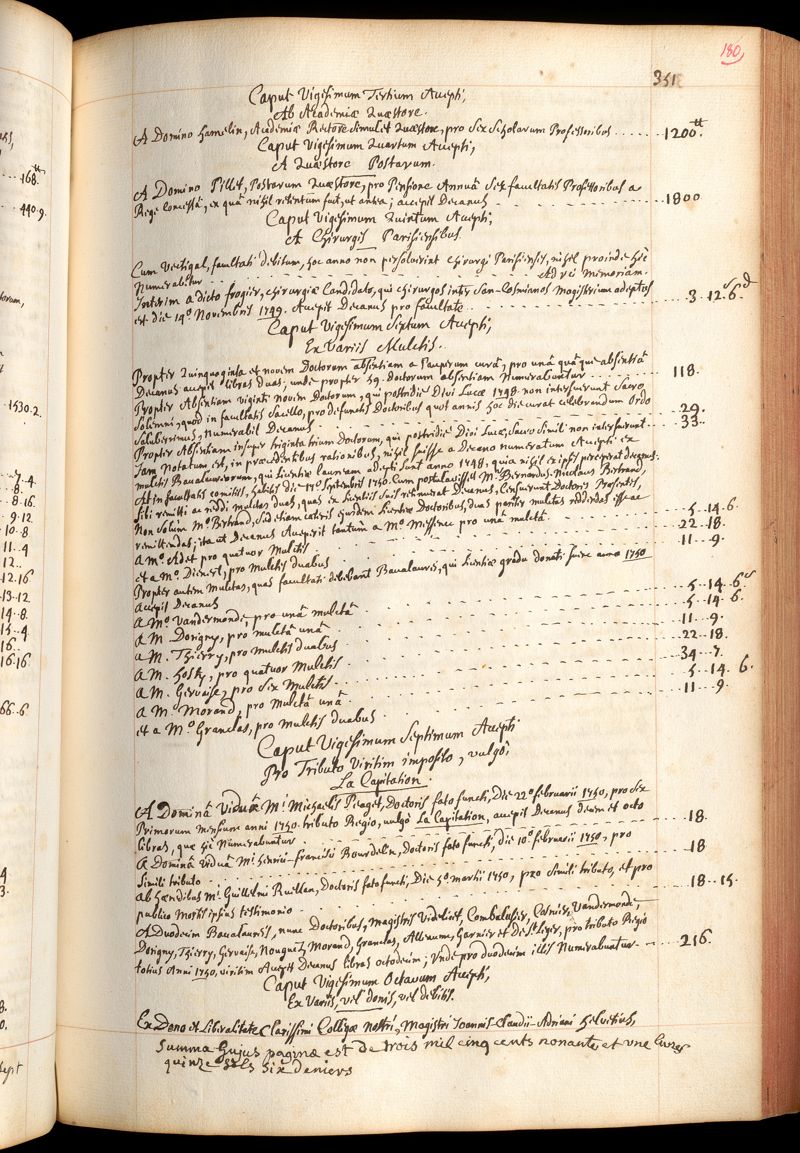 180
351
Caput Vigesimum Tertium Accepti,
Ab Academiæ Quæstore.
A Domino Hamelin, Academiæ Rectore Simul et Quæstore, pro Sex Scholarum Professoribus ...... 1200.tt
Caput Vigesimum Quartum Accepti,
A Quæstore Postarum.
A Domino Pillet, Postarum Quæstore, pro Pensione Annuâ Sex facultatis Professoribus a
Rege Concessâ, ex quâ nihil retentum fuit, ut antea; accepit Decanus ...... 1800
Caput Vigesimum Quintum Accepti,
A Chirurgis Parisiensibus.
Cum Vectigal, facultati debitum, hoc anno non persolverint Chirurgi Parisienses, nihil proinde hîc
Numerabitur ...... Ad rei memoriam.
Interim a Dicto frogier, chirurgiæ Candidato, qui chirurgos inter San-Cosmianos magisterium adeptus
est die 14o. Novembris 1749. Accepit Decanus pro facultate ...... 3..12.s6.d
Caput Vigesimum Sextum Accepti,
Ex Variis Mulctis.
Propter Quinquaginta et novem Doctorum absentiam a Pauperum curâ, pro unâ quâque absentiâ
Decanus accepit libras duas; unde propter 59. Doctorum absentiam Numerabuntur ...... 118.
Propter Absentiam viginti novem Doctorum, qui postridie Divi Lucæ 1748. non interfuerunt Sacro
Solemni, quod in facultatis Sacello, pro defunctis Doctoribus quot annis hoc die curat celebrandum Ordo
Saluberrimus, Numerabit Decanus ...... 29.
Propter Absentiam insuper triginta trium Doctorum, qui postridie Divi Lucæ, Sacro Simili non interfuerunt ... 33..
Jam Notatum est, in præcedentibus rationibus, nihil fuisse a Decano numeratum Accepti ex
mulctis Baccalaureorum, qui Licentiæ lauream adepti Sunt anno 1748, quia nihil ex ipsis perceperat decanus.
At in facultatis comitiis, habitis die 17o. Septembris 1750. Cum postulavisset M. Bernardus-Nicolaus Bertrand,
Sibi remitti ac reddi mulctas duas, quas ex Licentiis Suis retinuerat Decanus, Censuerunt Doctores Præsentes,
Non Solum Mo. Bertrand, Sed etiam cæteris ejusdem Licentiæ Doctoribus, duas pariter mulctas reddendas esse ac
remittendas; ita ut Decanus Acceperit tantùm a Mo. Messence pro unâ mulctâ ...... 5..14.6
A Mo. Adet pro quatuor Mulctis ...... 22.18.
et a Mo. Dienert, pro Mulctis duabus ...... 11..9.
Propter autem Mulctas, quas facultati debebant Baccalaurei, qui Licentiæ gradu donati fuere anno 1750
Accepit Decanus
A Mo. Vandermonde, pro unâ mulctâ ...... 5..14..6.s
A M. Dorigny, pro mulctâ unâ ...... 5..14..6.
A M. Thierry, pro mulctis duabus ...... 11..9.
A M. Hosty, pro quatuor Mulctis ...... 22..18.
A M. Gervaise, pro Sex Mulctis ...... 34..7.
A Mo. Morand, pro Mulctâ unâ ...... 5..14..6.
et a Mo. Granclas, pro mulctis duabus ...... 11..9.
Caput Vigesimum Septimum Accepti
Pro Tributo Viritim imposito, vulgò,
La Capitation.
A Dominâ Viduâ Mi. Michaelis Peaget, Doctoris fato functi, Die 22o. februarii 1750, pro Sex
Primorum mensium anni 1750. tributo Regio, vulgò La Capitation, accepit Decanus decem et octo
libras, quæ hîc Numerabuntur ...... 18.
A Dominâ viduâ Mi. Henrici-francisci Bourdelin, Doctoris fato functi, die 10o. februarii 1750, pro
Simili tributo ...... 18
Ab hæredibus Mi. Guillelmi Ruellan, Doctoris fato functi, Die 5o. martii 1750, pro Simili tributo, et pro
publico mortis ipsius testimonio ...... 18..15.
A Duodecim Baccalaureis, nunc Doctoribus, Magistris Videlicet, Combalusier, Vandermonde,
Dorigny, Thierry, Gervaise, Morand, Granclas, Garnier et De St. Leger, pro tributo Regio
totius Anni 1750, viritim Accepit Decanus libras octodecim; Unde pro duodecim illis Numerabuntur ...... 216.
Caput Vigesimum Octavum Accepti,
Ex Variis, vel donis, vel debitis.
Ex Dono et Liberalitate Clarissimi Collegæ nostri, Magistri Joannis-Claudii-Adriani Helvetius,
Summa hujus paginæ est de trois mil cinq cents nonante et une livres
quinze sols six deniers